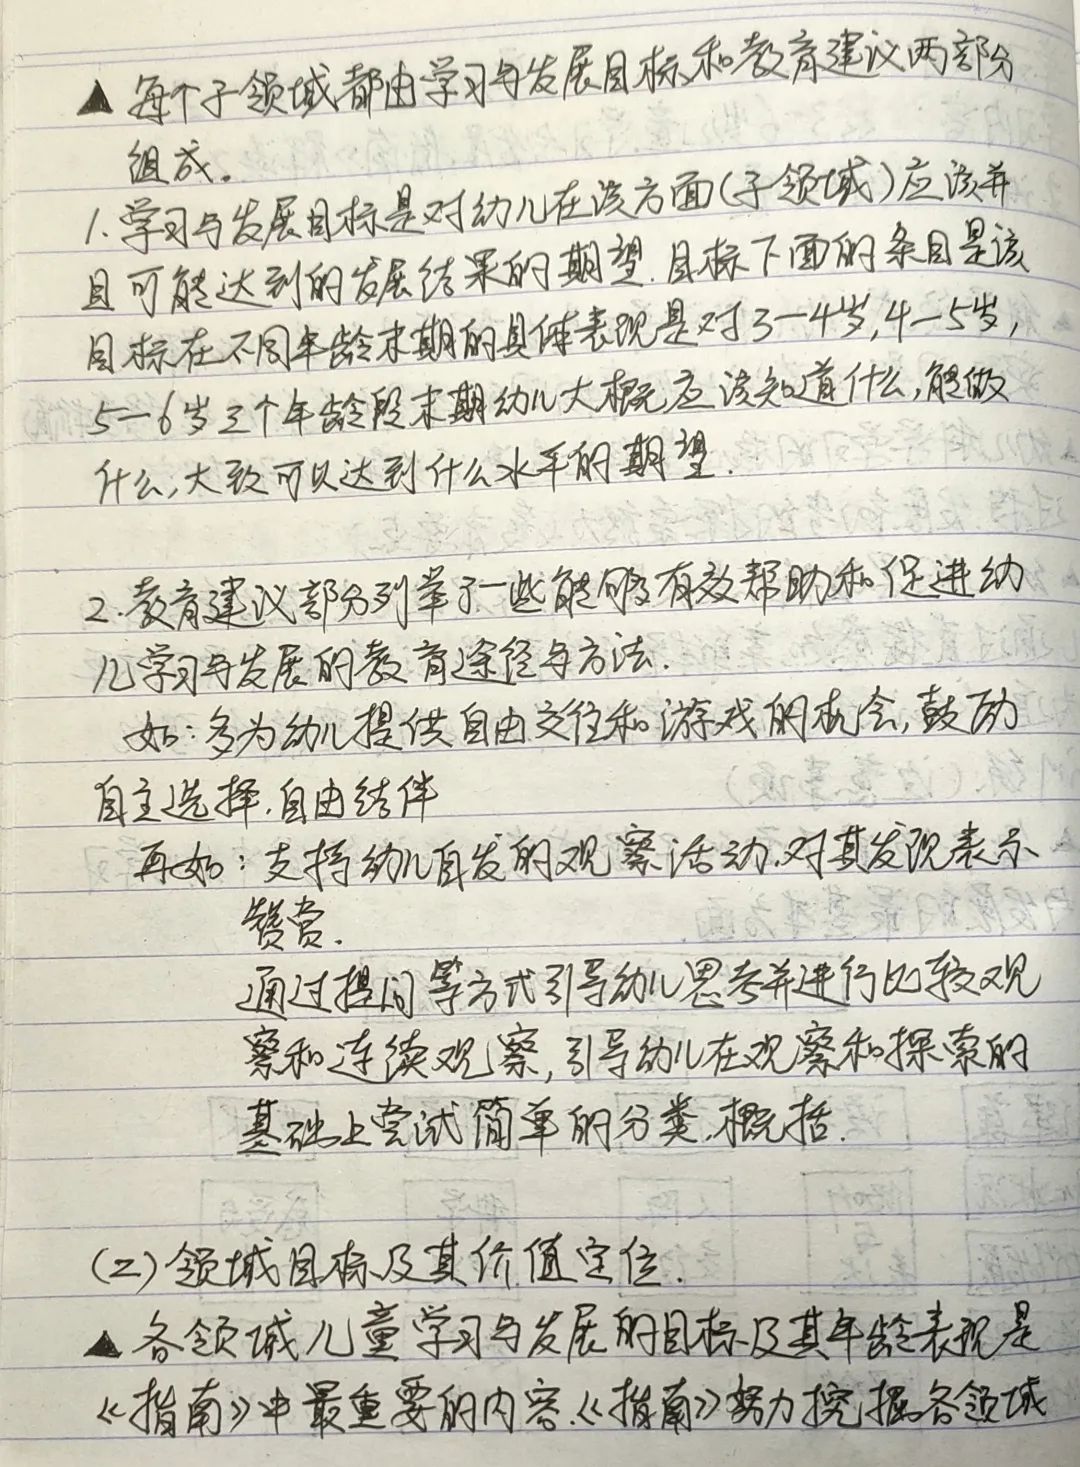 ▲ 每个子领域都由学习与发展目标和教育建议两部分
组成。
1.学习与发展目标是对幼儿在该方面(子领域)应该并
且可能达到的发展结果的期望.目标下面的条目是该
目标在不同年龄末期的具体表现是对3-4岁,4-5岁,
5-6岁三个年龄段末期幼儿大概应该知道什么,能做
什么,大致可以达到什么水平的期望.
2.教育建议部分列举了一些能够有效帮助和促进幼
儿学习与发展的教育途径与方法.
如:多为幼儿提供自由交往和游戏的机会,鼓励
自主选择.自由结伴
再如:支持幼儿自发的观察活动.对其发现表示
赞赏.
通过提问等方式引导幼儿思考并进行比较观
察和连续观察,引导幼儿在观察和探索的
基础上尝试简单的分类.概括.
(二)领域目标及其价值定位.
▲ 各领域儿童学习与发展的目标及其年龄表现是
《指南》中最重要的内容.《指南》努力挖掘各领域